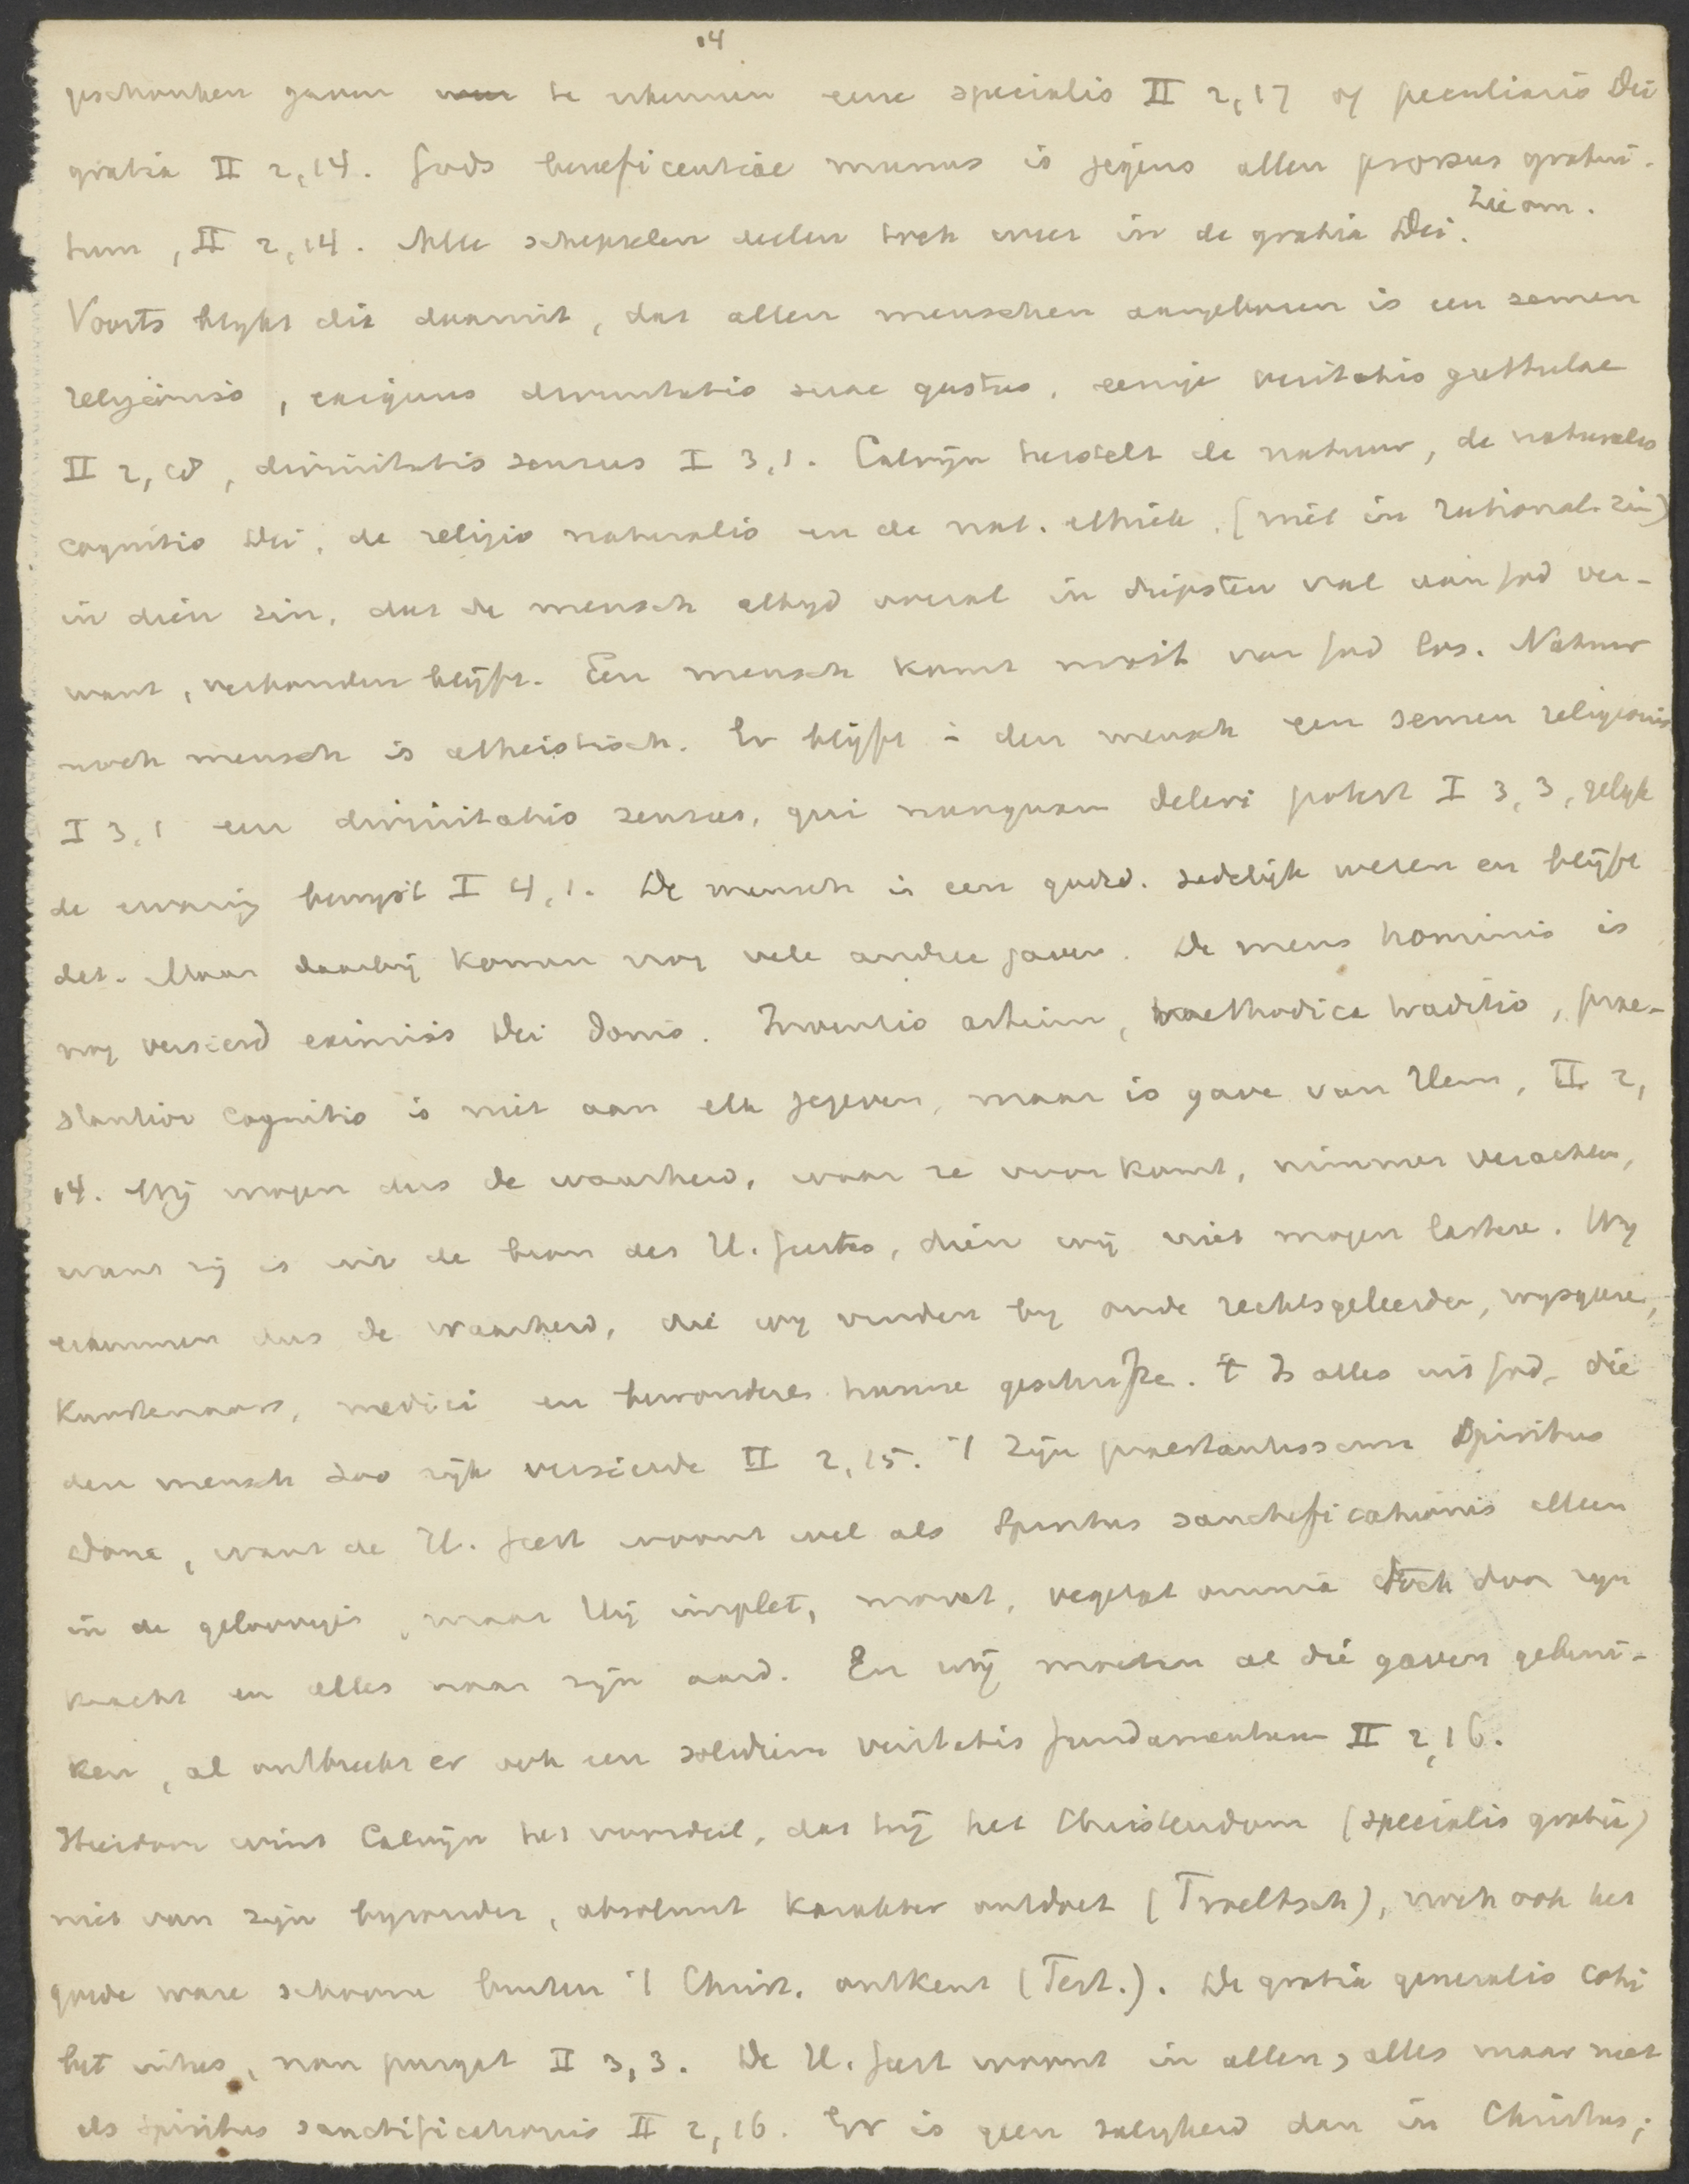 14
geschonken gaven te erkennen eene specialis II 2,17 of peculiaris Dei
gratia II 2,14. Gods beneficentiae munus is jegens allen prorsus gratui-
tum, II 2,14. Alle schepselen deelen toch weer in de gratia Dei. Zie om.
Voorts blykt dit daaruit, dat allen menschen aangeboren is een semen
religionis, exiguus divinitatis suae gustus, eenige veritatis guttulae
II 2, divinitatis sensus I 3,1. Calvijn herstelt de natuur, de naturalis
cognitio Dei, de religio naturalis en de nat. ethiek. (niet in rational. zin)
in dien zin, dat de mensch altyd overal in diepsten val van God ver-
want, verbonden blijft. Een mensch komt nooit van God los. Natuur
noch mensch is atheistisch. Er blijft i den mensch een semen religionis
I 3,1 een divinitatis sensus, qui nunquam deleri potest I 3,3, gelyk
de ervaring bewyst I 4,1. De mensch is een godsd. zedelijk wezen en blijft
det. Maar daarbij komen nog vele andere gaven. De mens hominis is
nog versierd eximiis Dei donis. Inventio artium, methodica traditio, prae-
stantior cognitio is niet aan elk gegeven, maar is gave van Hem, II 2,
14. Wij mogen dus de waarheid, waar ze voorkomt, nimmer verachten,
want zij is uit de bron des H. Geestes, dien wij niet mogen lasteren. Wy
erkennen dus de waarheid, die wy vinden by oude rechtsgeleerden, wysgeren,
kunstenaars, medici en bewonderen hunne geschriften. 't Is alles uit God, die
den mensch zoo rijk versierde II 2,15. 't Zijn praestantissima Spiritus
dona, want de H. Geest woont wel als Spiritus sanctificationis alleen
in de geloovigen, maar Hij implet, movet, vegetat omnia toch door zijn
kracht en alles naar zijn aard. En wij moeten al die gaven gebrui-
ken, al ontbreekt er ook een solidum veritatis fundamentum II 2,16.
Hierdoor wint Calvijn het voordeel, dat hij het Christendom (specialis gratia)
niet van zijn byzonder, absoluut karakter ontdoet (Troeltsch), noch ook het
goede ware schoone buiten 't Christ. ontkent (Tert.). De gratia generalis cohi
bet intus, non purgat II 3,3. De H. Geest woont in allen, alles maar niet
als Spiritus sanctificationis II 2,16. Er is geen zaligheid dan in Christus;